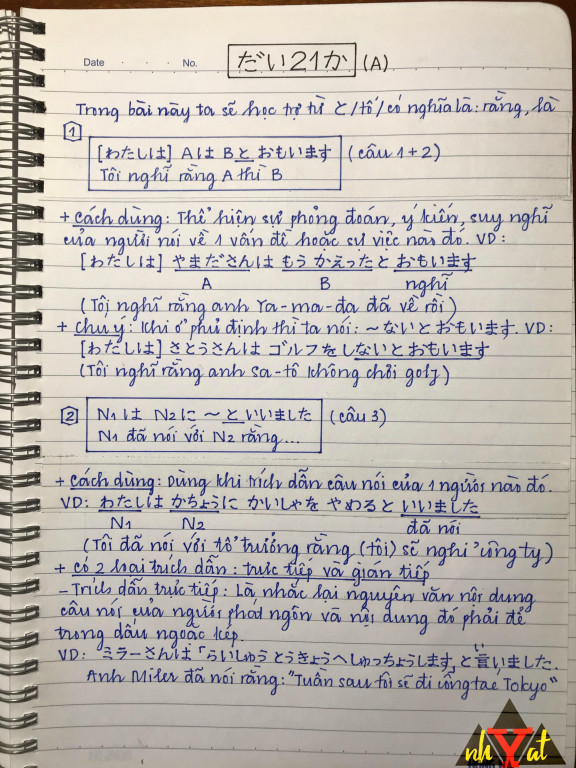 Date . . . No.
だい21か (A)
Trong bài này ta sẽ học trợ từ と/tố/có nghĩa là: rằng, là
1
[わたしは] A は B と おもいます (câu 1+2)
Tôi nghĩ rằng A thì B
+ Cách dùng: Thể hiện sự phỏng đoán, ý kiến, suy nghĩ
của người nói về 1 vấn đề hoặc sự việc nào đó. VD:
[わたしは] やまださんは もう かえったと おもいます
A B nghĩ
(Tôi nghĩ rằng anh Ya-ma-đa đã về rồi)
+ chú ý: Khi ở phủ định thì ta nói: ~ないとおもいます. VD:
[わたしは] さとうさんは ゴルフをしないとおもいます
(Tôi nghĩ rằng anh Sa-tô không chơi golf)
2
N1は N2に ~ と いいました (câu 3)
N1 đã nói với N2 rằng...
+ Cách dùng: Dùng khi trích dẫn câu nói của 1 người nào đó.
VD: わたしは かちょうに かいしゃを やめると いいました
N1 N2 đã nói
(Tôi đã nói với tổ trưởng rằng (tôi) sẽ nghỉ công ty)
+ có 2 loại trích dẫn: trực tiếp và gián tiếp
- Trích dẫn trực tiếp: Là nhắc lại nguyên văn nội dung
câu nói của người phát ngôn và nội dung đó phải để
trong dấu ngoặc kép.
VD: ミラーさんは「らいしゅう とうきょうへ しゅっちょうします」と 言いました.
い
Anh Miler đã nói rằng: "Tuần sau tôi sẽ đi công tác Tokyo"
nhXat